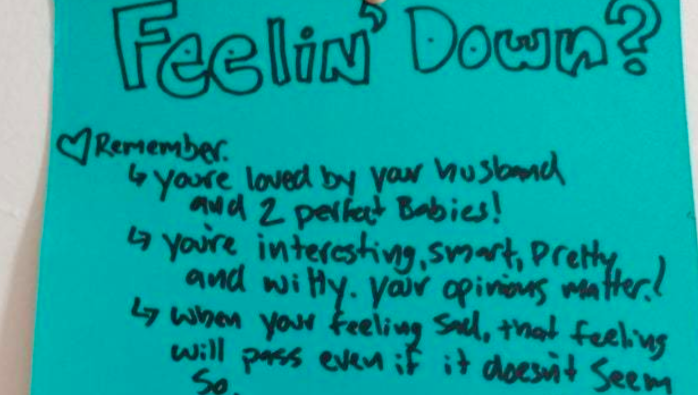 Feelin' Down?
♡ Remember.
↳ you're loved by your husband
and 2 perfect Babies!
↳ you're interesting, smart, Pretty
and witty. your opinions matter!
↳ when your feeling sad, that feeling
will pass even if it doesn't seem
so.